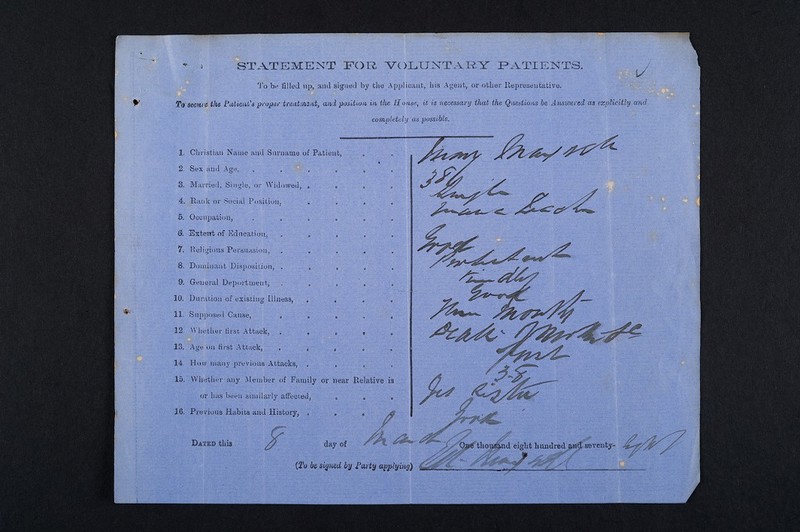 STATEMENT FOR VOLUNTARY PATIENTS.
To be filled up, and signed by the Applicant, his Agent, or other Representative.
To secure the Patient's proper treatment, and position in the House, it is necessary that the Questions be Answered as explicitly and
completely as possible.
1. Christian Name and Surname of Patient,
2. Sex and Age, 38
3. Married, Single, or Widowed, Single
4. Rank or Social Position,
5. Occupation,
6. Extent of Education, Good
7. Religious Persuasion, Protestant
8. Dominant Disposition, Friendly
9. General Deportment, Good
10. Duration of existing Illness, Months
11. Supposed Cause, Death of Mother &c
12. Whether first Attack, first
13. Age on first Attack, 38
14. How many previous Attacks,
15. Whether any Member of Family or near Relative is
or has been similarly affected, Yes Sister
16. Previous Habits and History, Good
DATED this 8 day of March One thousand eight hundred and seventy- eight
(To be signed by Party applying)